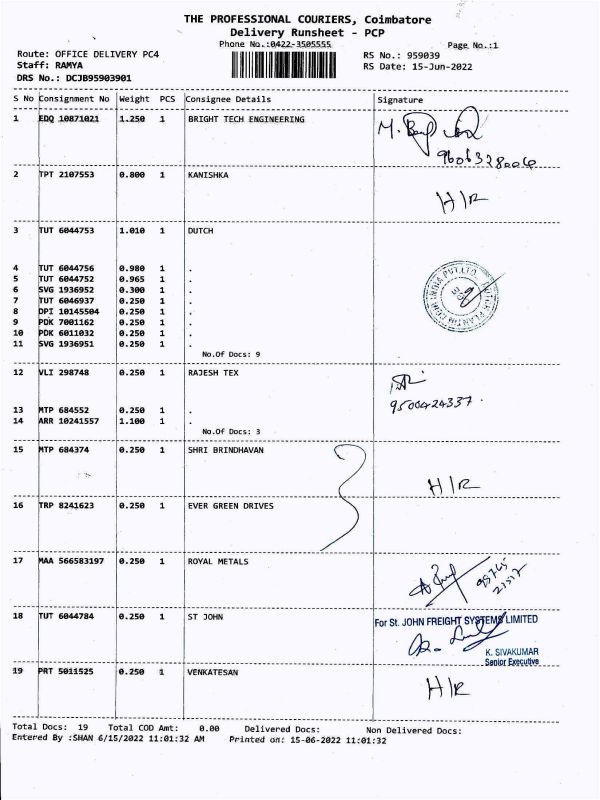 THE PROFESSIONAL COURIERS, Coimbatore
Delivery Runsheet - PCP
Phone No.:0422-3505555 Page No.:1
Route: OFFICE DELIVERY PC4 RS No.: 959039
Staff: RAMYA RS Date: 15-Jun-2022
DRS No.: DCJB95903901
S No Consignment No Weight PCS Consignee Details Signature
1 EDQ 10871021 1.250 1 BRIGHT TECH ENGINEERING
2 TPT 2107553 0.800 1 KANISHKA H/R
3 TUT 6044753 1.010 1 DUTCH
4 TUT 6044756 0.980 1 .
5 TUT 6044752 0.965 1 .
6 SVG 1936952 0.300 1 .
7 TUT 6046937 0.250 1 .
8 DPI 10145504 0.250 1 .
9 PDK 7001162 0.250 1 .
10 PDK 6011032 0.250 1 .
11 SVG 1936951 0.250 1 .
No.Of Docs: 9
12 VLI 298748 0.250 1 RAJESH TEX
9500424337.
13 MTP 684552 0.250 1 .
14 ARR 10241557 1.100 1 .
No.Of Docs: 3
15 MTP 684374 0.250 1 SHRI BRINDHAVAN
H/R
16 TRP 8241623 0.250 1 EVER GREEN DRIVES
17 MAA 566583197 0.250 1 ROYAL METALS
18 TUT 6044784 0.250 1 ST JOHN For St. JOHN FREIGHT SYSTEMS LIMITED
K. SIVAKUMAR
Senior Executive
19 PRT 5011525 0.250 1 VENKATESAN H/R
Total Docs: 19 Total COD Amt: 0.00 Delivered Docs: Non Delivered Docs:
Entered By :SHAN 6/15/2022 11:01:32 AM Printed on: 15-06-2022 11:01:32